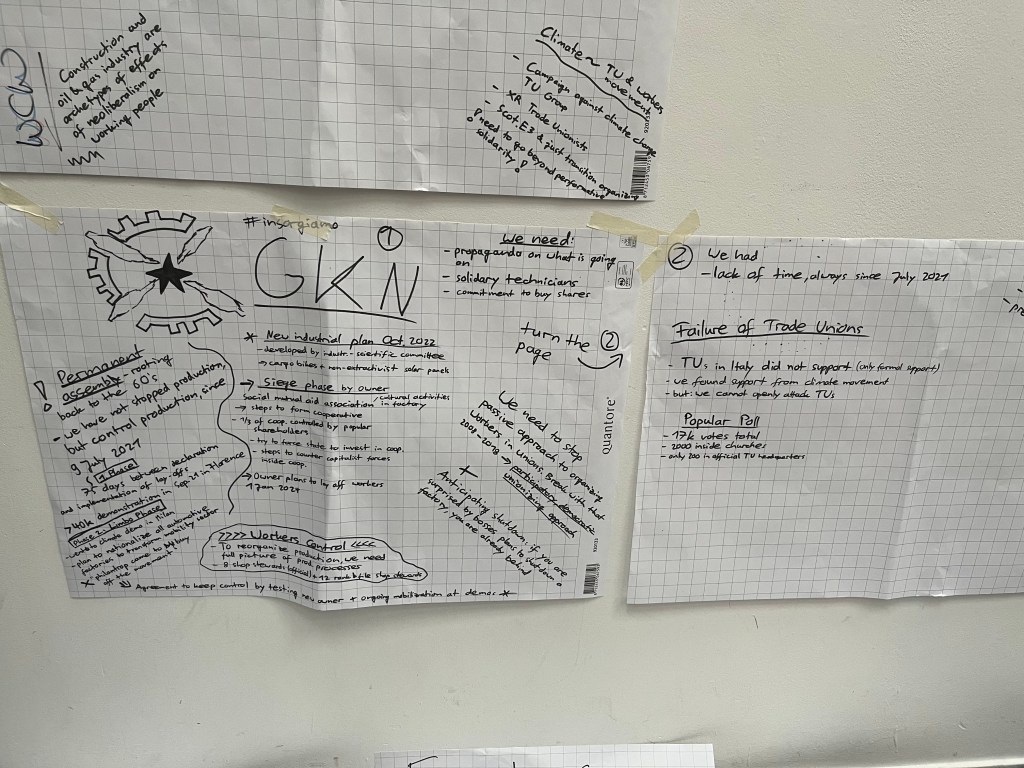 WCW
Construction and
oil & gas industry are
archetypes of effects
of neoliberalism on
working people
Climate ~ TU & workers
movements
- Campaign against climate change
TU Group
- XR Trade Unionists
- Scot.E3 & just transition organizing
! need to go beyond performative
solidarity!
#insorgiamo
GKN
1
We need:
- propaganda on what is going
on
- solidary technicians
- commitment to buy shares
turn the
page
2
! Permanent
assembly - rooting
back to the 60's
- we have not stopped production,
but control production, since
9 July 2021
1. Phase
75 days between declaration
and implementation of lay-offs
>40k demonstration in Sep 21 in Florence
Phase 2: Limbo Phase
- climate demo in Milan
- plan to nationalize all automotive
factories to transform mobility sector
* Philantrop came to buy
off the movement
↳ Agreement to keep control by testing new owner + ongoing mobilization at demos *
* New industrial plan Oct. 2022
- developed by industr.-scientific committee
→ cargo bikes + non-extractivist solar panels
→ Siege phase by owner
Social mutual aid association / cultural activities in factory
→ steps to form cooperative
- 1/3 of coop. controlled by popular
shareholders
- try to force state to invest in coop.
- steps to counter capitalist forces
inside coop.
→ Owner plans to lay off workers
1 Jan 2024
>>>> Workers Control <<<<
- To reorganize production, we need
full picture of prod. processes
- 8 shop stewards (official) + 12 rank & file shop stewards
We need to stop
passive approach to organizing
workers in unions. Break with that
2008-2018 → participatory democratic
unionizing approach
+
Anticipating shutdown, if you are
surprised by bosses plans to shutdown a
factory, you are already
behind
QUANTORE
2
We had
- lack of time, always since July 2021
Failure of Trade Unions
- TUs in Italy did not support (only formal support)
- we found support from climate movement
- but: we cannot openly attack TUs
Popular Poll
- 17k votes total
- 2000 inside churches
- only 200 in official TU headquarters